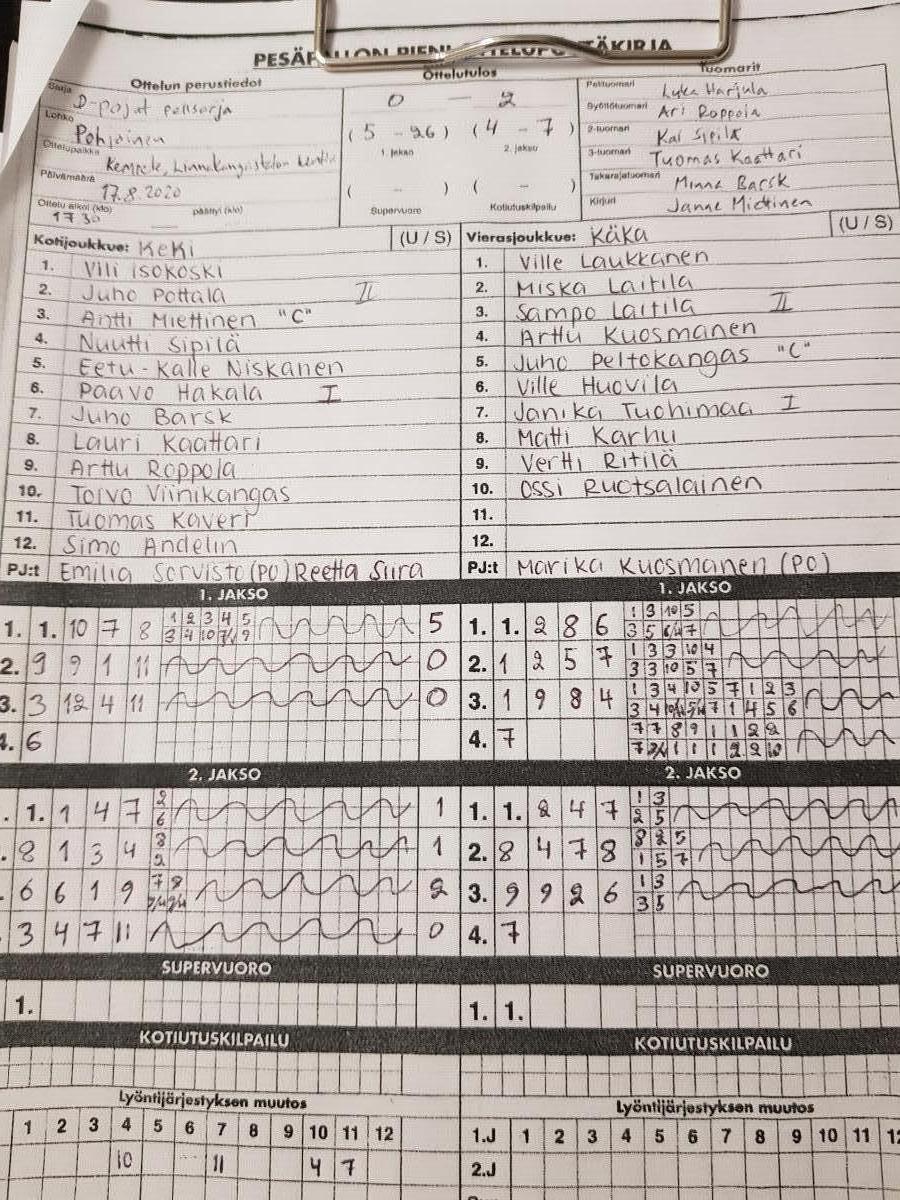 Ottelun perustiedot
Ottelutulos
Tuomarit
Sarja D-pojat
Lohko Pohjoinen
Ottelupaikka Kempele,
Päivämäärä 17.8.2020
Ottelu alkoi (klo) 1730 päättyi (klo)
0 - 2
( 5 - 26 ) ( 4 - 7 )
1. jakso 2. jakso
( - ) ( - )
Supervuoro Kotiutuskilpailu
Pelituomari
Syöttötuomari Ari Roppola
2-tuomari Kai Sipilä
3-tuomari Tuomas Kaattari
Takarajatuomari Minna Barsk
Kirjuri Janne Miettinen
Kotijoukkue: KeKi (U / S)
1. Vili Isokoski
2. Juho Pottala II
3. Antti Miettinen "C"
4. Nuutti Sipilä
5. Eetu-Kalle Niskanen
6. Paavo Hakala I
7. Juho Barsk
8. Lauri Kaattari
9. Arttu Roppola
10. Toivo Viinikangas
11. Tuomas Kaveri
12. Simo Andelin
PJ:t Emilia Sorvisto (PO) Reetta Siira
Vierasjoukkue: KäKa (U / S)
1. Ville Laukkanen
2. Miska Laitila
3. Sampo Laitila II
4. Arttu Kuosmanen
5. Juho Peltokangas "C"
6. Ville Huovila
7. Janika Tuohimaa I
8. Matti Karhu
9. Vertti Ritilä
10. Ossi Ruotsalainen
11.
12.
PJ:t Marika Kuosmanen (PO)
1. JAKSO
1. 1. 10 7 8 1 2 3 4 5 5
2. 9 9 1 11 0
3. 3 12 4 11 0
4. 6
1. JAKSO
1. 1. 2 8 6 1 3 10 5
2. 1 2 5 7 1 3 3 10 4
3 3 10 5 7
3. 1 9 8 4 1 3 4 10 5 7 1 2 3
4. 7 7 7 8 9 1 1 2 2
2. JAKSO
1. 1 4 7 2 1
6
8 1 3 4 8 1
2
6 6 1 9 7 8 2
3 4 7 11 0
2. JAKSO
1. 1. 2 4 7 1 3
2 5
2. 8 4 7 8 8 2 5
1 5 7
3. 9 9 2 6 1 3
3 5
4. 7
SUPERVUORO
1.
SUPERVUORO
1. 1.
KOTIUTUSKILPAILU
KOTIUTUSKILPAILU
Lyöntijärjestyksen muutos
1 2 3 4 5 6 7 8 9 10 11 12
10 11 4 7
Lyöntijärjestyksen muutos
1.J 1 2 3 4 5 6 7 8 9 10 11
2.J